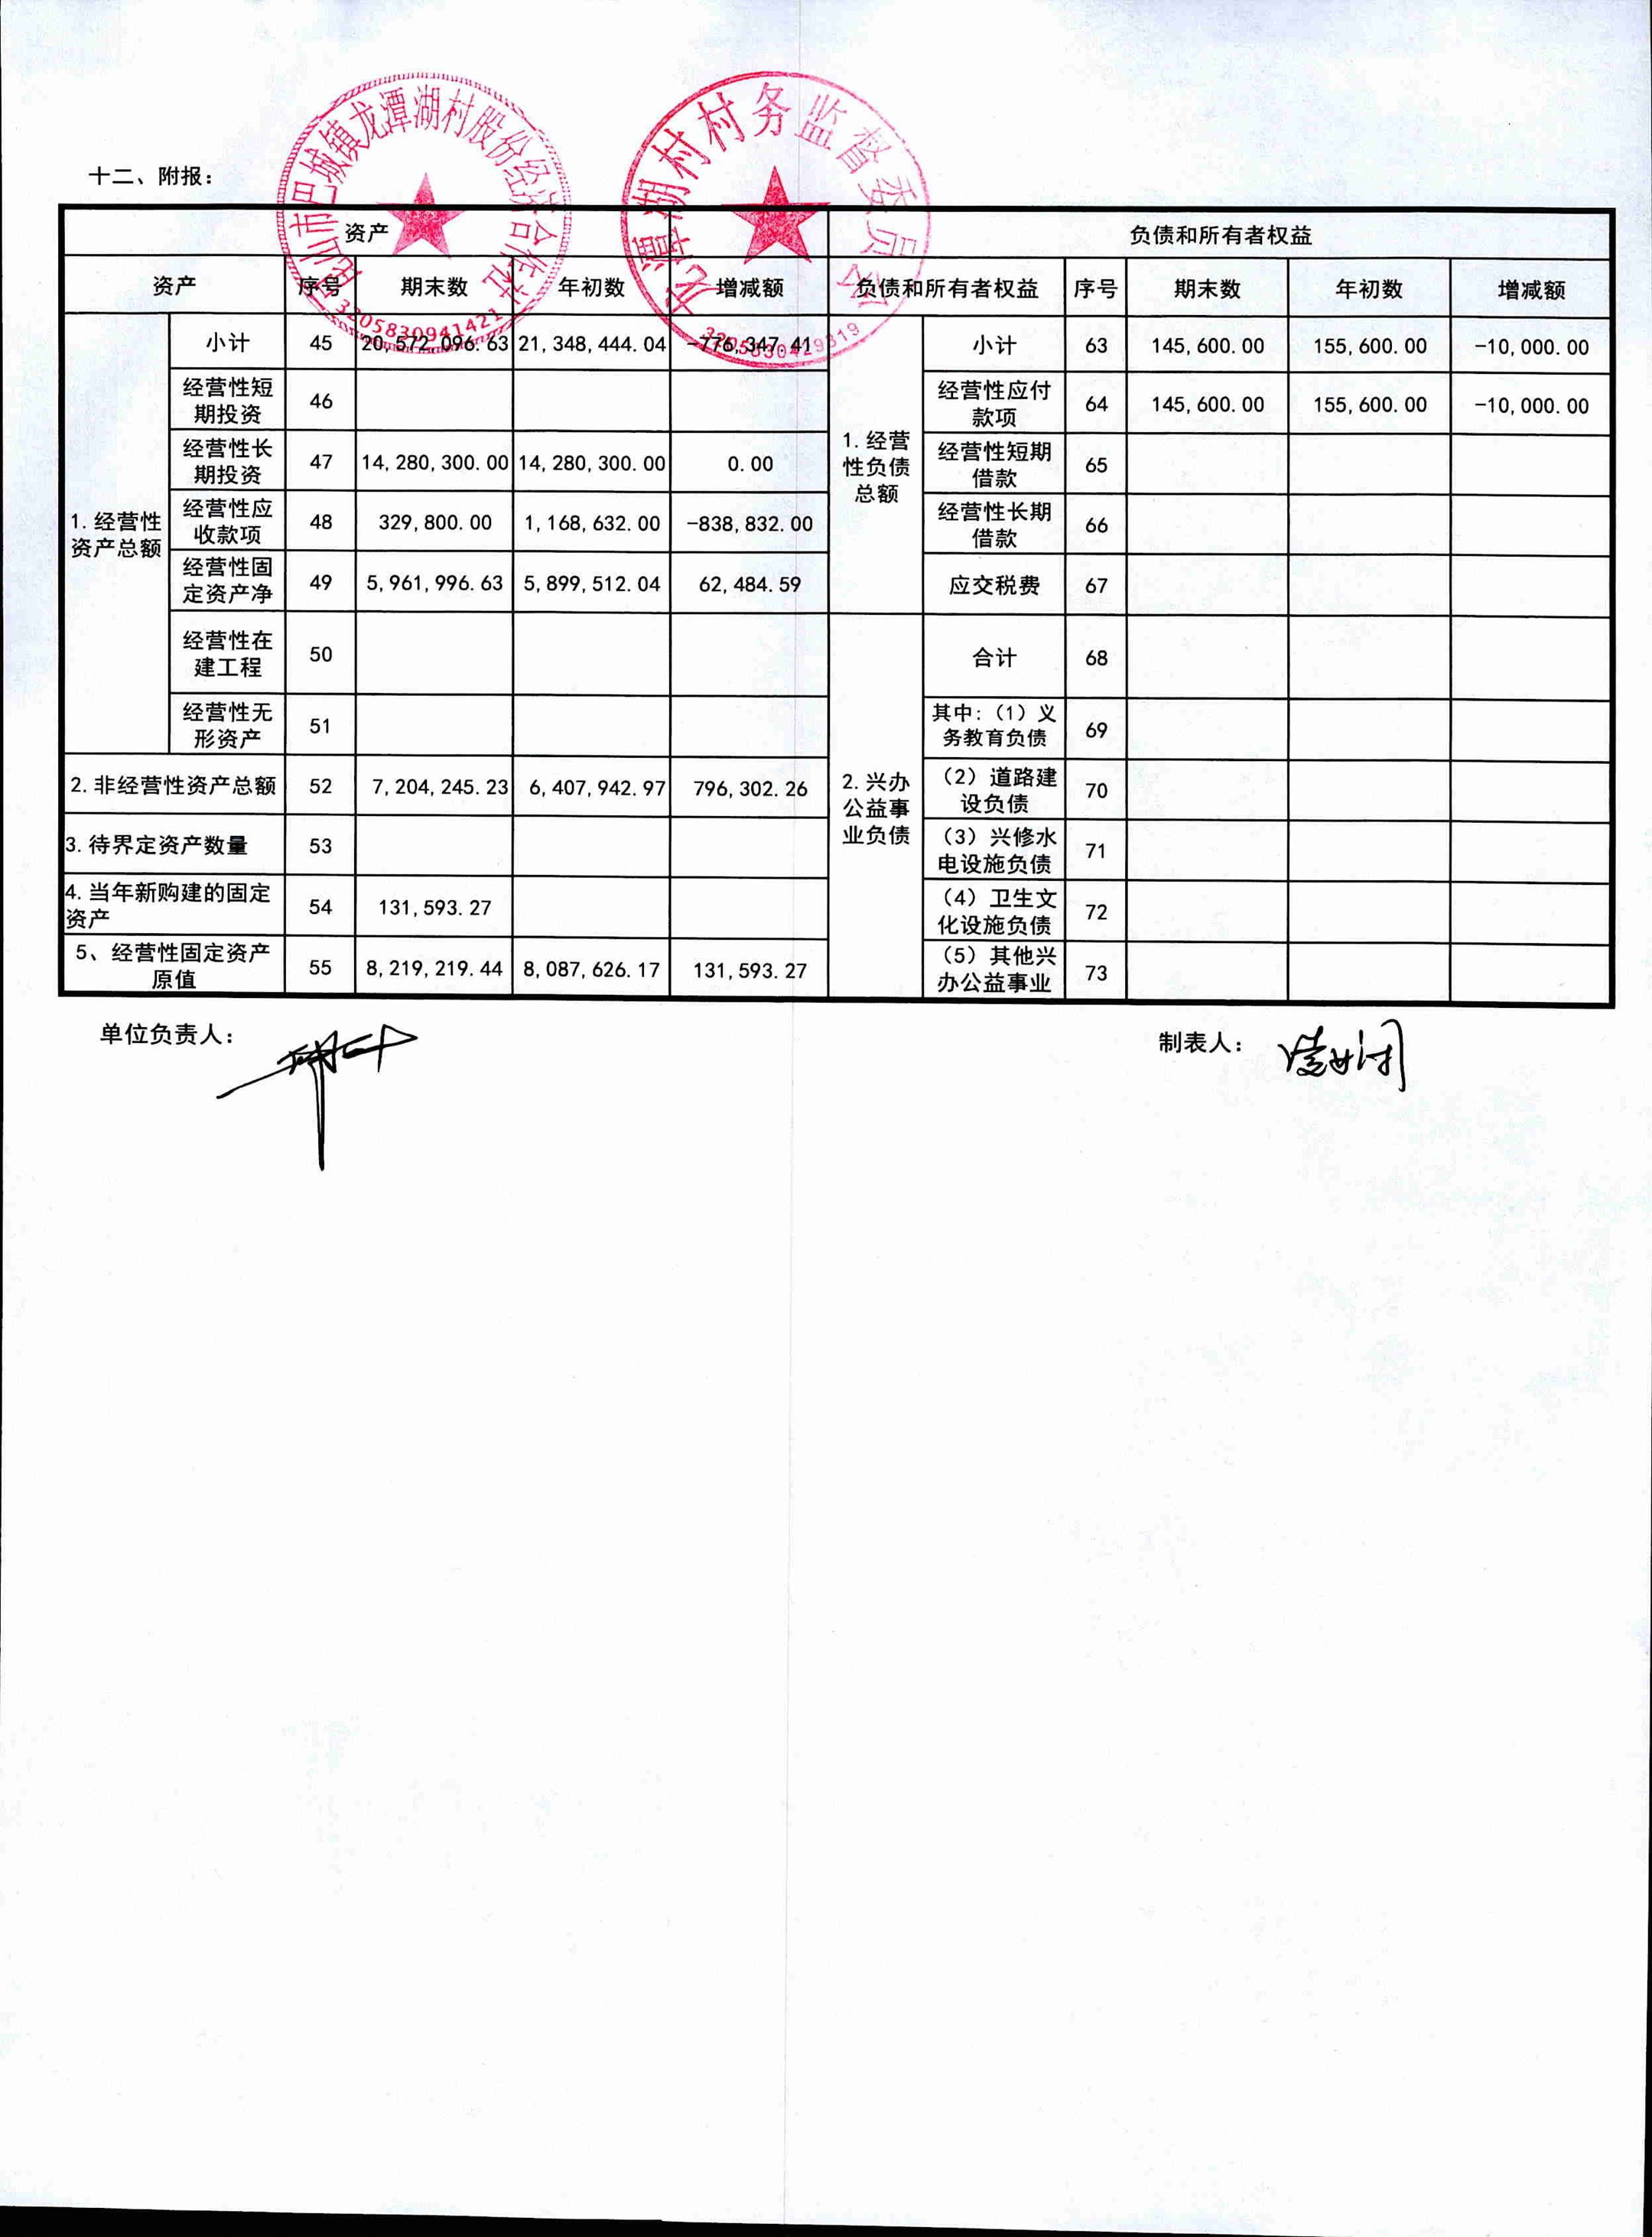 昆山市巴城镇龙潭湖村股份经济合作社
3205830941421
龙潭湖村村务监督委员会
十二、附报：
资产 负债和所有者权益
资产 序号 期末数 年初数 增减额 负债和所有者权益 序号 期末数 年初数 增减额
1.经营性资产总额 小计 45 20,572,096.63 21,348,444.04 -776,347.41 1.经营性负债总额 小计 63 145,600.00 155,600.00 -10,000.00
经营性短期投资 46 经营性应付款项 64 145,600.00 155,600.00 -10,000.00
经营性长期投资 47 14,280,300.00 14,280,300.00 0.00 经营性短期借款 65
经营性应收款项 48 329,800.00 1,168,632.00 -838,832.00 经营性长期借款 66
经营性固定资产净 49 5,961,996.63 5,899,512.04 62,484.59 应交税费 67
经营性在建工程 50 2.兴办公益事业负债 合计 68
经营性无形资产 51 其中:（1）义务教育负债 69
2.非经营性资产总额 52 7,204,245.23 6,407,942.97 796,302.26 （2）道路建设负债 70
3.待界定资产数量 53 （3）兴修水电设施负债 71
4.当年新购建的固定资产 54 131,593.27 （4）卫生文化设施负债 72
5、经营性固定资产原值 55 8,219,219.44 8,087,626.17 131,593.27 （5）其他兴办公益事业 73
单位负责人： 制表人：